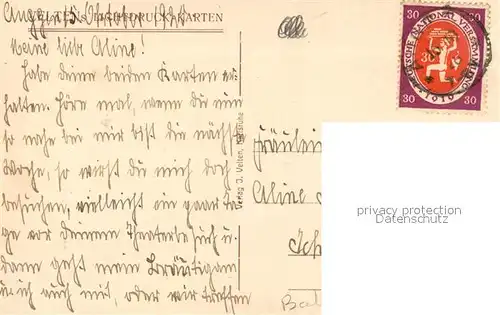 VELTEN'S LICHTDRUCK-KARTEN
Meine liebe Aline!
Habe deine beiden Karten er-
halten. Höre mal, wenn du nun
so nahe bei mir bist die nächste
Woche, so wirst du mich doch
besuchen, vielleicht ein paar Ta-
ge vor deinem Theaterbesuch u.
dann geht mein Bräutigam
u. ich auch mit, oder wir treffen
Verlag J. Velten, Karlsruhe
Fräulein
Aline
30 30
DEUTSCHE NATIONALVERSAMMLUNG
1919
30 30
privacy protection
Datenschutz